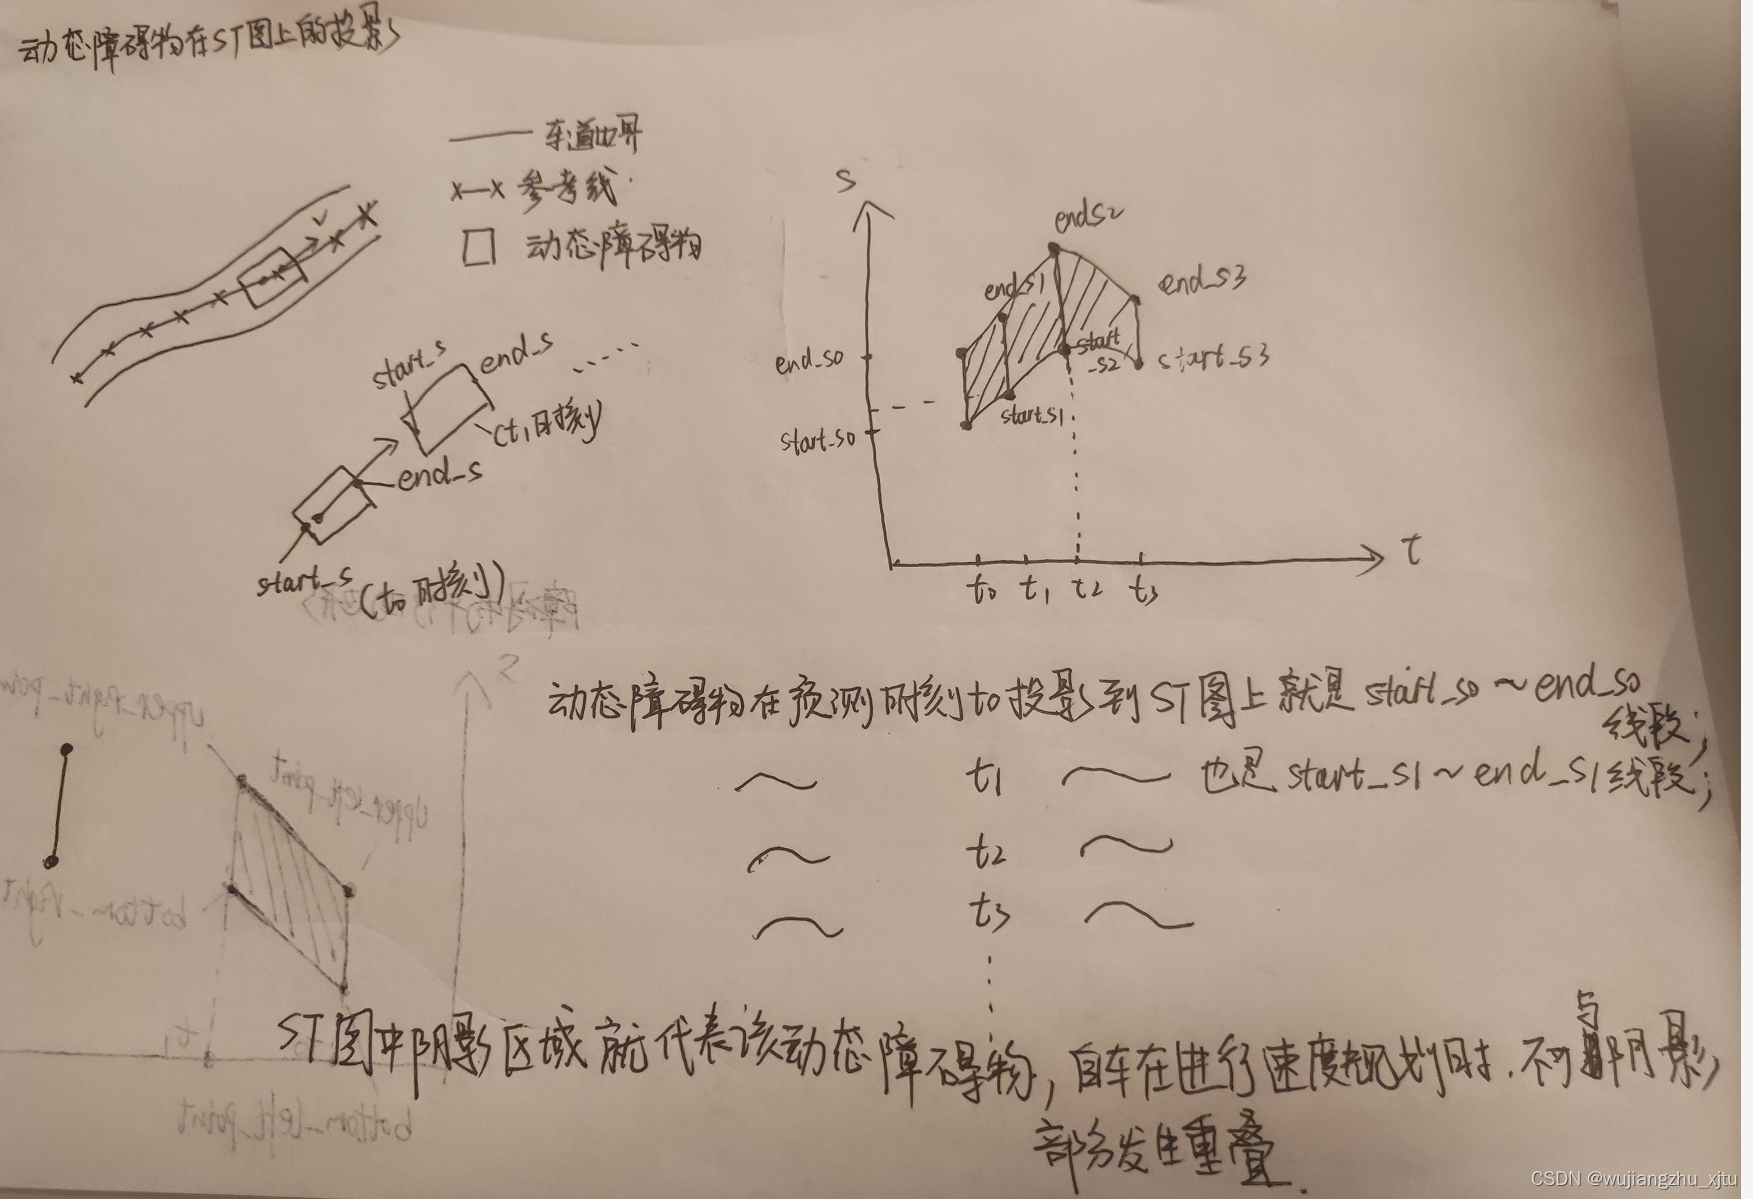 动态障碍物在ST图上的投影
车道边界
x—x 参考线
动态障碍物
v
start_s
end_s
(t1时刻)
end_s
start_s
(t0时刻)
s
ends2
end_s1
end_s3
end_s0
start_s2
start_s3
start_s1
start_s0
t
t0 t1 t2 t3
动态障碍物在预测时刻t0投影到ST图上就是start_s0~end_s0
线段;
~ t1 ~ 也是start_s1~end_s1线段;
~ t2 ~
~ t3 ~
ST图中阴影区域就代表该动态障碍物,自车在进行速度规划时.不可与阴影
部分发生重叠.
s
upper_right_poin
upper_left_point
bottom_right
t1
bottom_left_point
CSDN @wujiangzhu_xjtu